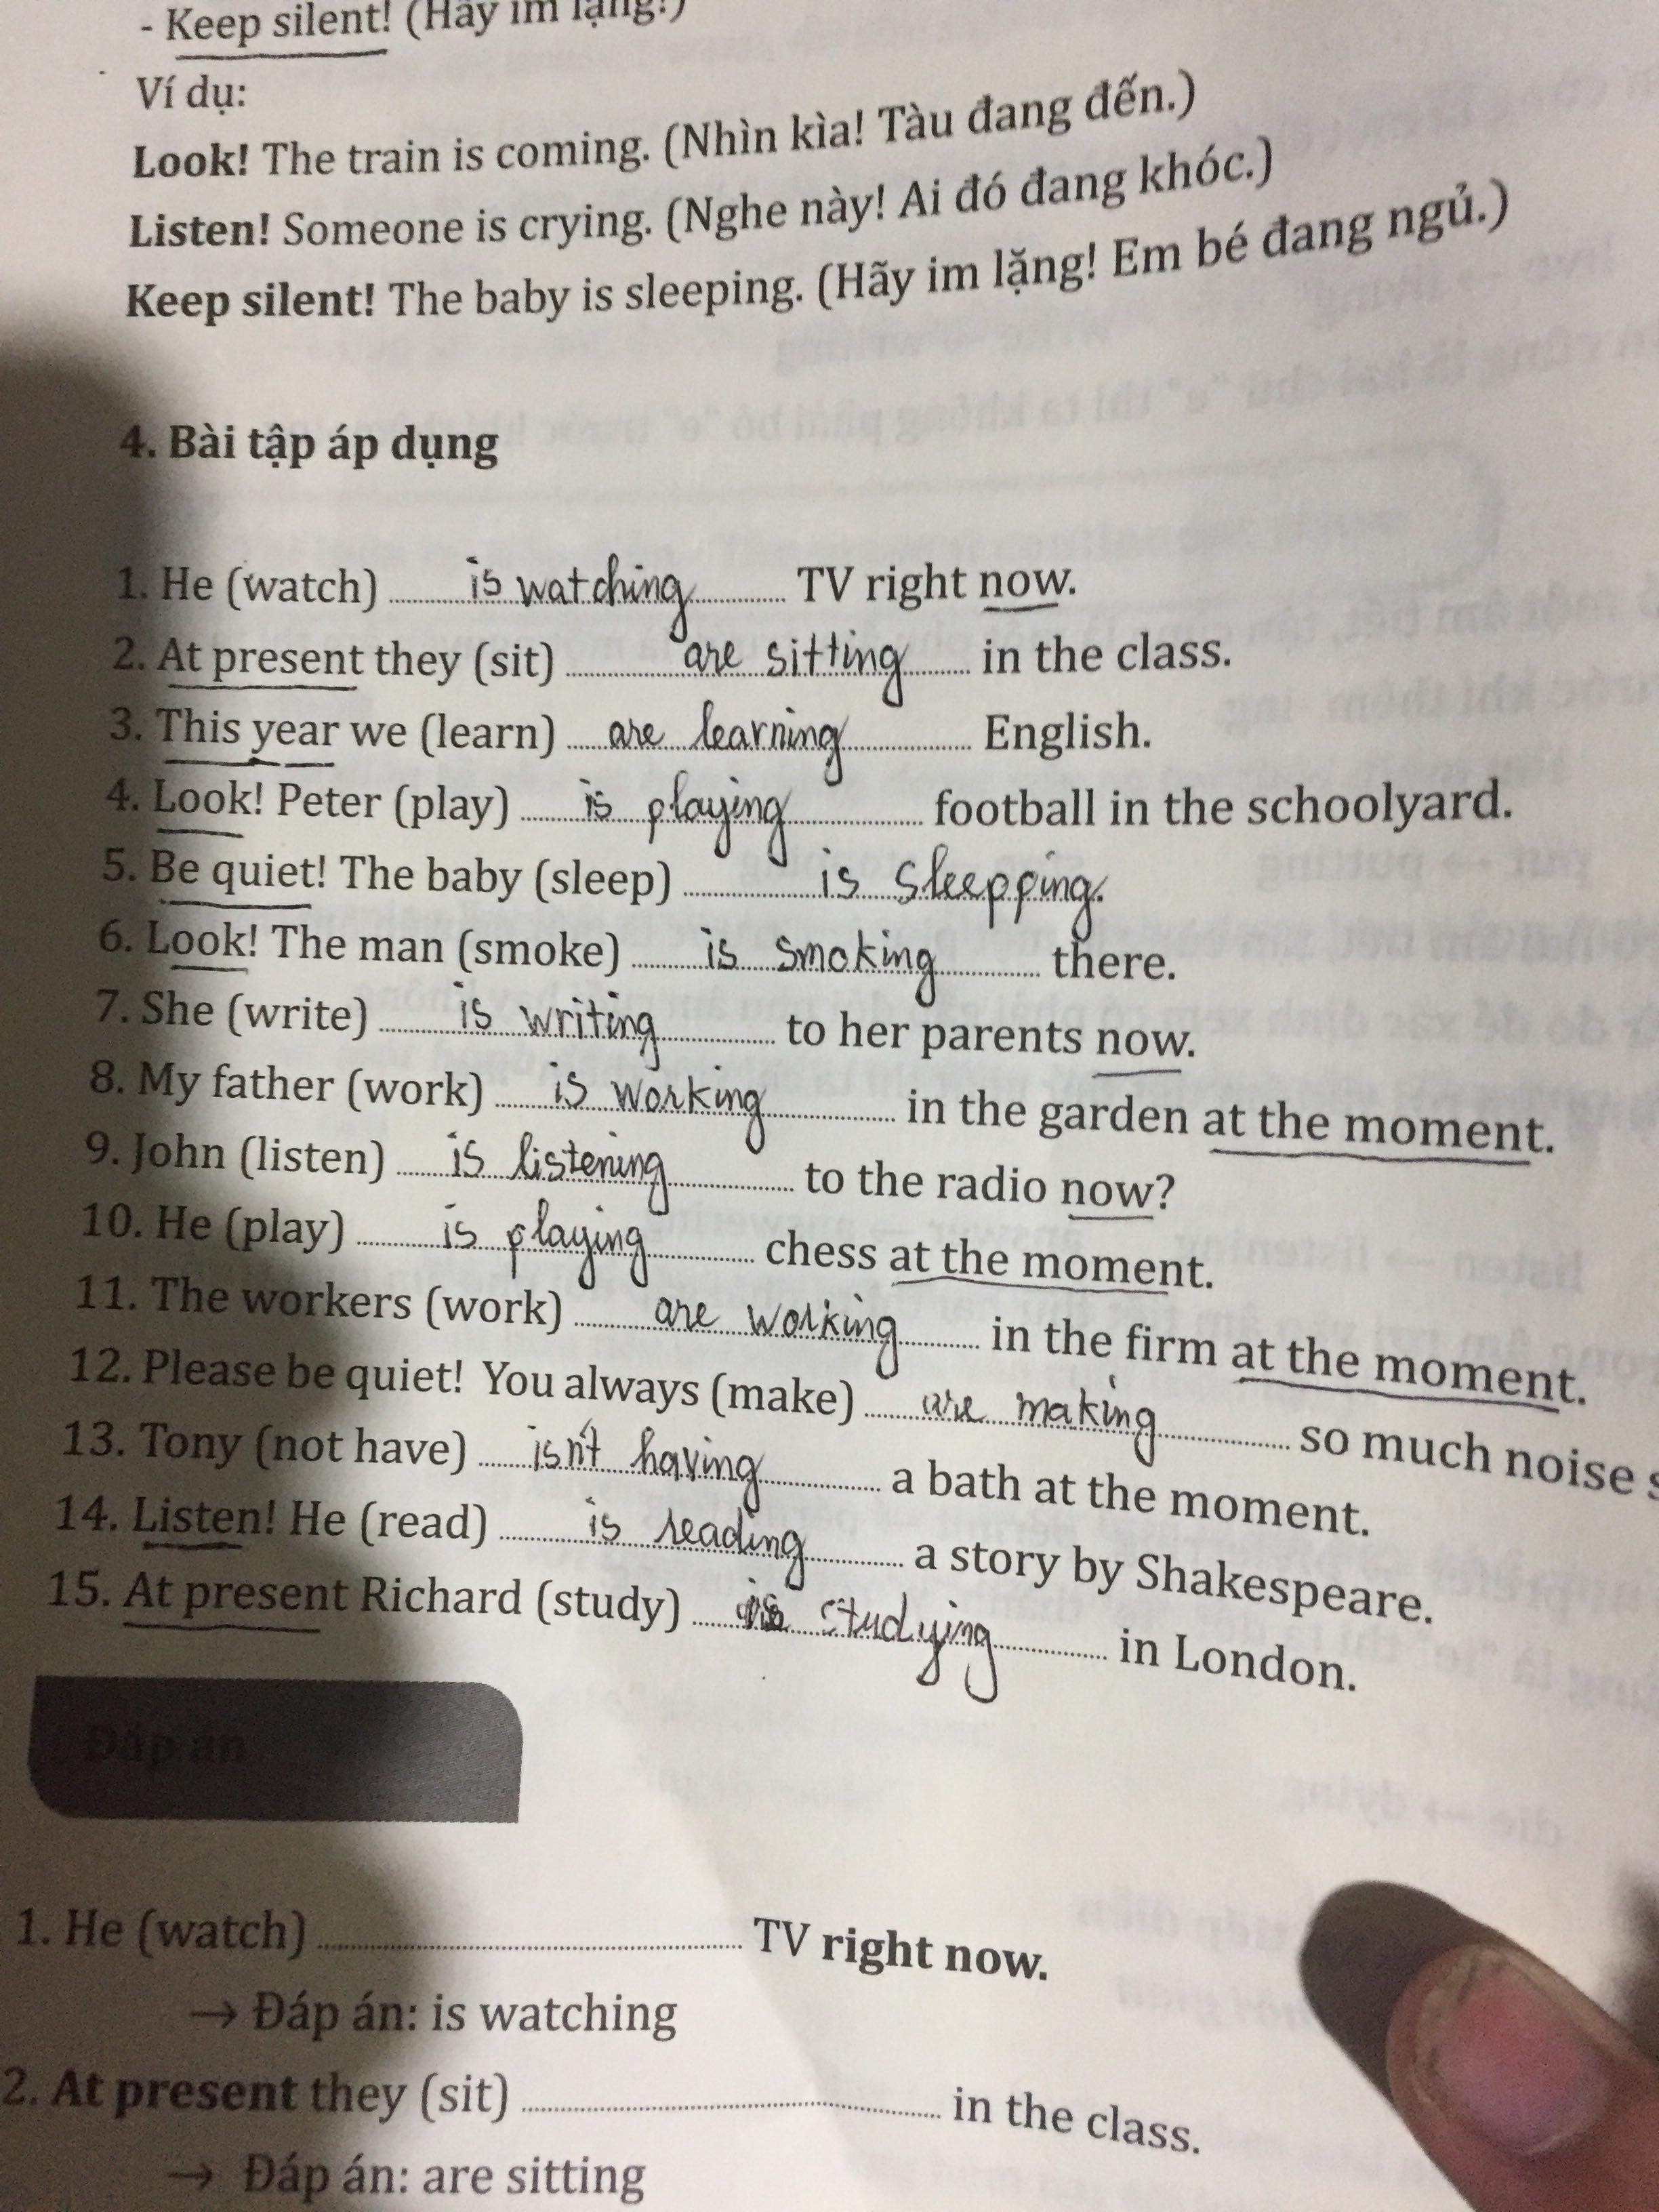 - Keep silent! (Hãy im lặng!)
Ví dụ:
Look! The train is coming. (Nhìn kìa! Tàu đang đến.)
Listen! Someone is crying. (Nghe này! Ai đó đang khóc.)
Keep silent! The baby is sleeping. (Hãy im lặng! Em bé đang ngủ.)
4. Bài tập áp dụng
1. He (watch) is watching TV right now.
2. At present they (sit) are sitting in the class.
3. This year we (learn) are learning English.
4. Look! Peter (play) is playing football in the schoolyard.
5. Be quiet! The baby (sleep) is sleepping.
6. Look! The man (smoke) is smoking there.
7. She (write) is writing to her parents now.
8. My father (work) is working in the garden at the moment.
9. John (listen) is listening to the radio now?
10. He (play) is playing chess at the moment.
11. The workers (work) are working in the firm at the moment.
12. Please be quiet! You always (make) are making so much noise
13. Tony (not have) isn't having a bath at the moment.
14. Listen! He (read) is reading a story by Shakespeare.
15. At present Richard (study) is studying in London.
Đáp án
1. He (watch) TV right now.
→ Đáp án: is watching
2. At present they (sit) in the class.
→ Đáp án: are sitting